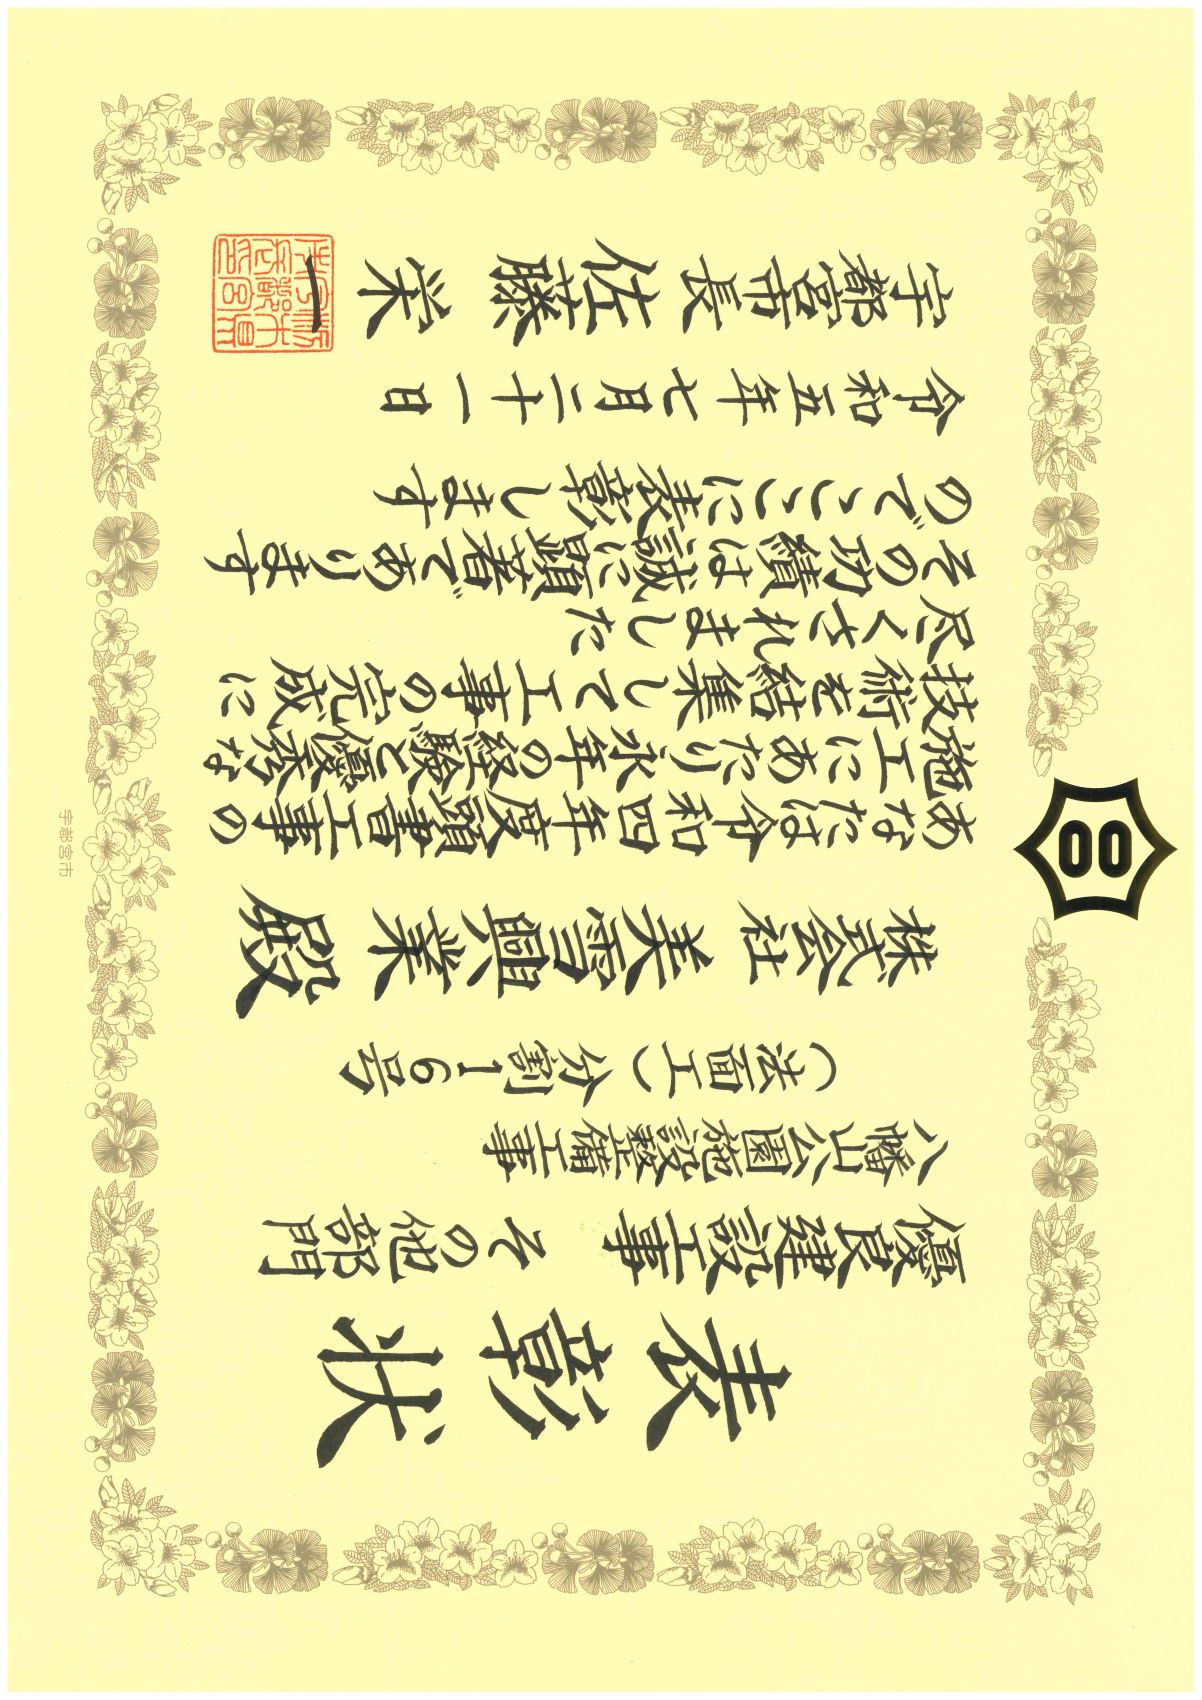 表彰状
優良建設工事 その他部門
八幡山公園施設整備工事
(法面工)分割1-6号
株式会社 美雪興業 殿
あなたは令和四年度頭書工事の
施工にあたり永年の経験と優秀な
技術を結集して工事の完成に
尽くされました
その功績は誠に顕著であります
のでここに表彰します
令和五年七月二十一日
宇都宮市長 佐藤 栄一
宇都宮市